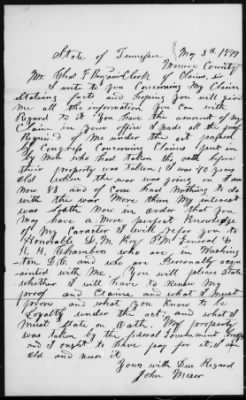 State of Tennessee May 3th 1879
Monroe County
Mr Chas F Benjamin Clerk of Claims, Sir
I write to you Concerning My Claim
Stateing facts and hoping you will give
me all the information you Can with
Regard to it You have the amount of my
Claim in your office I made all the proof
Requird of Me under the act passed
by Congress Concerning Claims put in
by Men who had taken the oath before
their property was taken, I was 40 years
Old when the war was going on I am
Now 58 and of Corse had Nothing to do
with the war More than My interest
was South Now in order that you
May have a More perfect Knowledge
of My Caracter I will refer you to
Honorable D. M. Key P.M. General &
who are in Washing
ton D.C. and who are Personally aqua
ainted with Me. You will please State
whether I will have to Renew My
proof and Claim and what I must
prove and what you Know to be
Loyalty under the act and what I
Must State on Oath. My property
was taken by the federal Government troops
and I ought to have pay for it I am
Old and need it
Yours with Due Regard
John